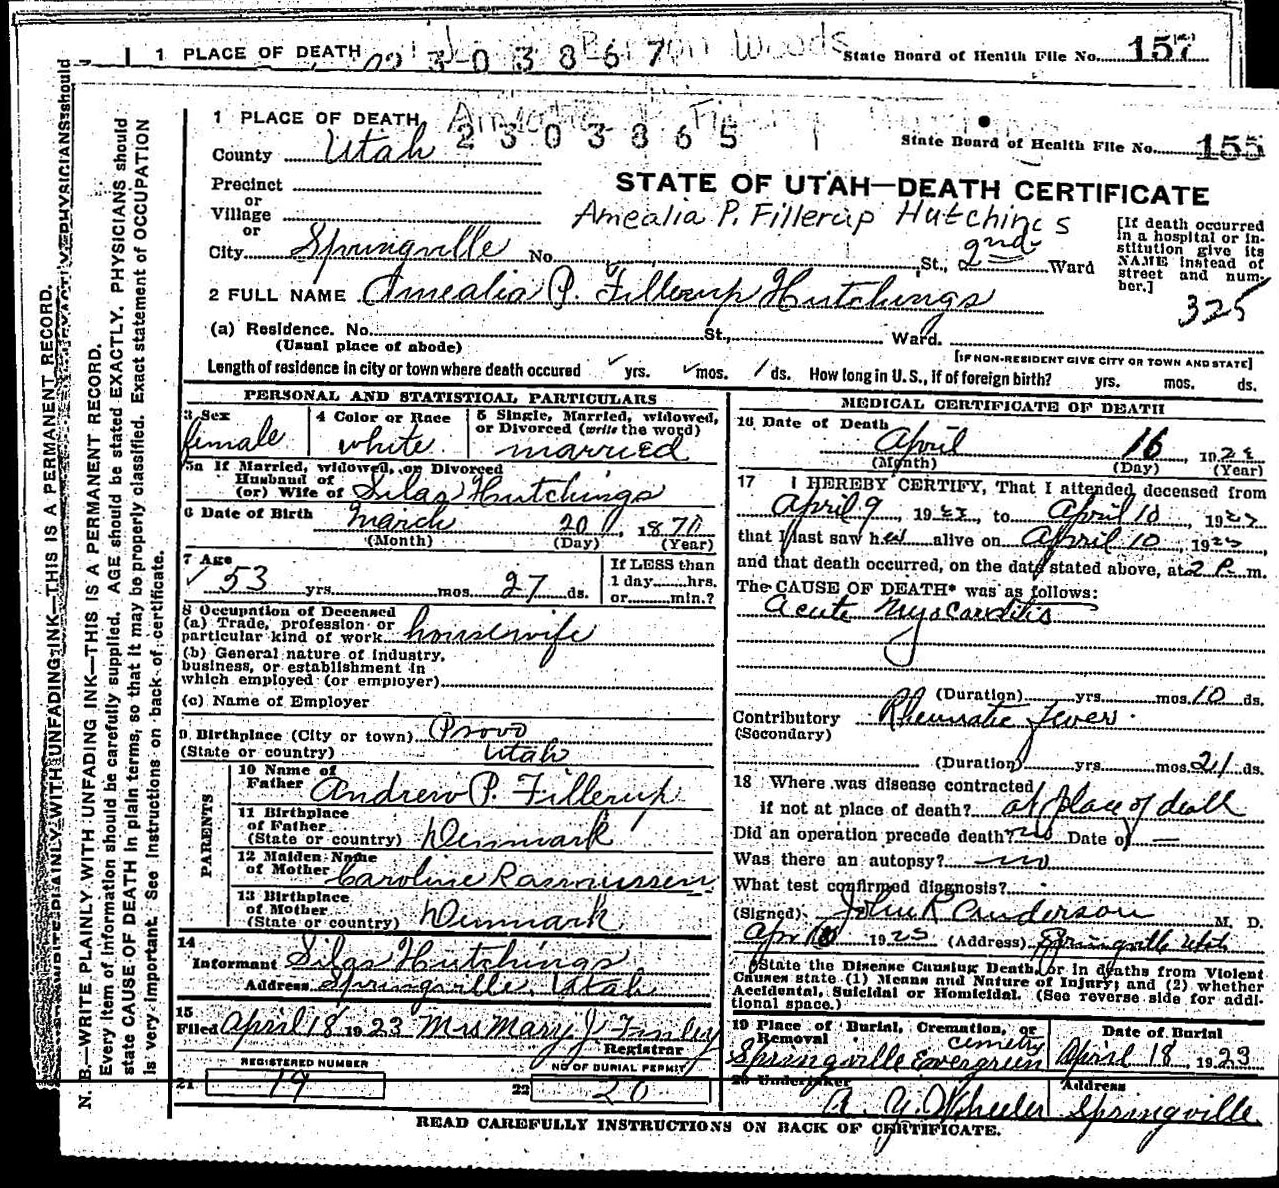 1 PLACE OF DEATH
2303867
Woods
State Board of Health File No. 157
1 PLACE OF DEATH
2303865
State Board of Health File No. 155
County Utah
Precinct
or
Village
or
STATE OF UTAH—DEATH CERTIFICATE
Amealia P. Fillerup Hutchings
City Springville No. St., 2nd Ward
[If death occurred in a hospital or institution give its NAME instead of street and number.]
325
2 FULL NAME Amealia P. Fillerup Hutchings
(a) Residence. No. St., Ward.
(Usual place of abode)
[IF NON-RESIDENT GIVE CITY OR TOWN AND STATE]
Length of residence in city or town where death occured ✓ yrs. ✓ mos. 1 ds. How long in U.S., if of foreign birth? yrs. mos. ds.
PERSONAL AND STATISTICAL PARTICULARS
3 Sex
female
4 Color or Race
white
5 Single, Married, widowed, or Divorced (write the word)
married
5a If Married, widowed, or Divorced
Husband of
(or) Wife of Silas Hutchings
6 Date of Birth
March 20, 18
(Month) (Day) (Year)
7 Age
✓ 53 yrs. mos. 27 ds.
If LESS than
1 day hrs.
or min.?
8 Occupation of Deceased
(a) Trade, profession or
particular kind of work housewife
(b) General nature of industry,
business, or establishment in
which employed (or employer)
(c) Name of Employer
9 Birthplace (City or town) Provo
(State or country) Utah
PARENTS
10 Name of
Father Andrew P. Fillerup
11 Birthplace
of Father
(State or country) Denmark
12 Maiden Name
of Mother Caroline Rasmussen
13 Birthplace
of Mother
(State or country) Denmark
14
Informant Silas Hutchings
Address Springville Utah
15
Filed April 18 1923 Mrs Mary J Finley
Registrar
REGISTERED NUMBER
21 19
NO OF BURIAL PERMIT
22 20
MEDICAL CERTIFICATE OF DEATH
16 Date of Death
April 16, 192
(Month) (Day) (Year)
17 I HEREBY CERTIFY, That I attended deceased from
April 9, 192 to April 10, 192
that I last saw her alive on April 10, 192
and that death occurred, on the date stated above, at 2 P. m.
The CAUSE OF DEATH* was as follows:
Acute Myocarditis
(Duration) yrs. mos. 10 ds.
Contributory Rheumatic Fever.
(Secondary)
(Duration) yrs. mos. 21 ds.
18 Where was disease contracted
if not at place of death? at place of death
Did an operation precede death? no Date of —
Was there an autopsy? no
What test confirmed diagnosis?
(Signed) John R Anderson M. D.
1923 (Address) Springville Utah
*State the Disease Causing Death, or in deaths from Violent
Causes state (1) Means and Nature of Injury; and (2) whether
Accidental, Suicidal or Homicidal. (See reverse side for additional space.)
19 Place of Burial, Cremation, or
Removal cemetry
Springville Evergreen
Date of Burial
April 18, 1923
20 Undertaker
A. Y. Wheeler
Address
Springville
READ CAREFULLY INSTRUCTIONS ON BACK OF CERTIFICATE.
N. B.—WRITE PLAINLY WITH UNFADING INK—THIS IS A PERMANENT RECORD.
Every item of information should be carefully supplied. AGE should be stated EXACTLY. PHYSICIANS should
state CAUSE OF DEATH in plain terms, so that it may be properly classified. Exact statement of OCCUPATION
is very important. See instructions on back of certificate.
WRITE PLAINLY WITH UNFADING INK—THIS IS A PERMANENT RECORD.
PHYSICIANS should